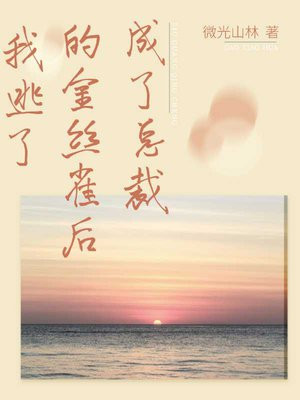 成了总裁
的金丝雀后
我逃了
微光山林 著